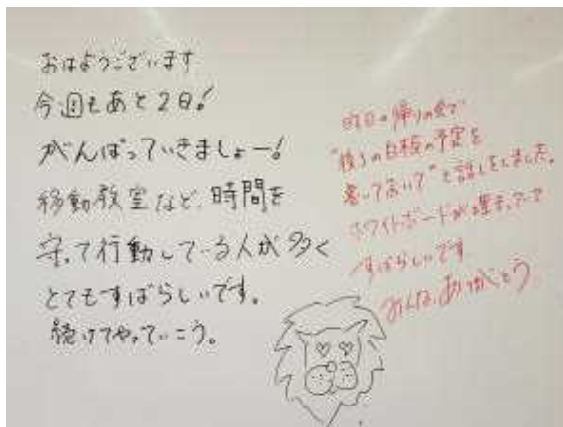 おはようございます
今週もあと2日!
がんばっていきましょー!
移動教室など、時間を
守って行動している人が多く
とてもすばらしいです。
続けてやっていこう。
昨日の帰りの会で
"後ろの白板の予定を
書いておいて"と話しをしました。
ホワイトボードが埋まっていて
すばらしいです
みんな、ありがとう